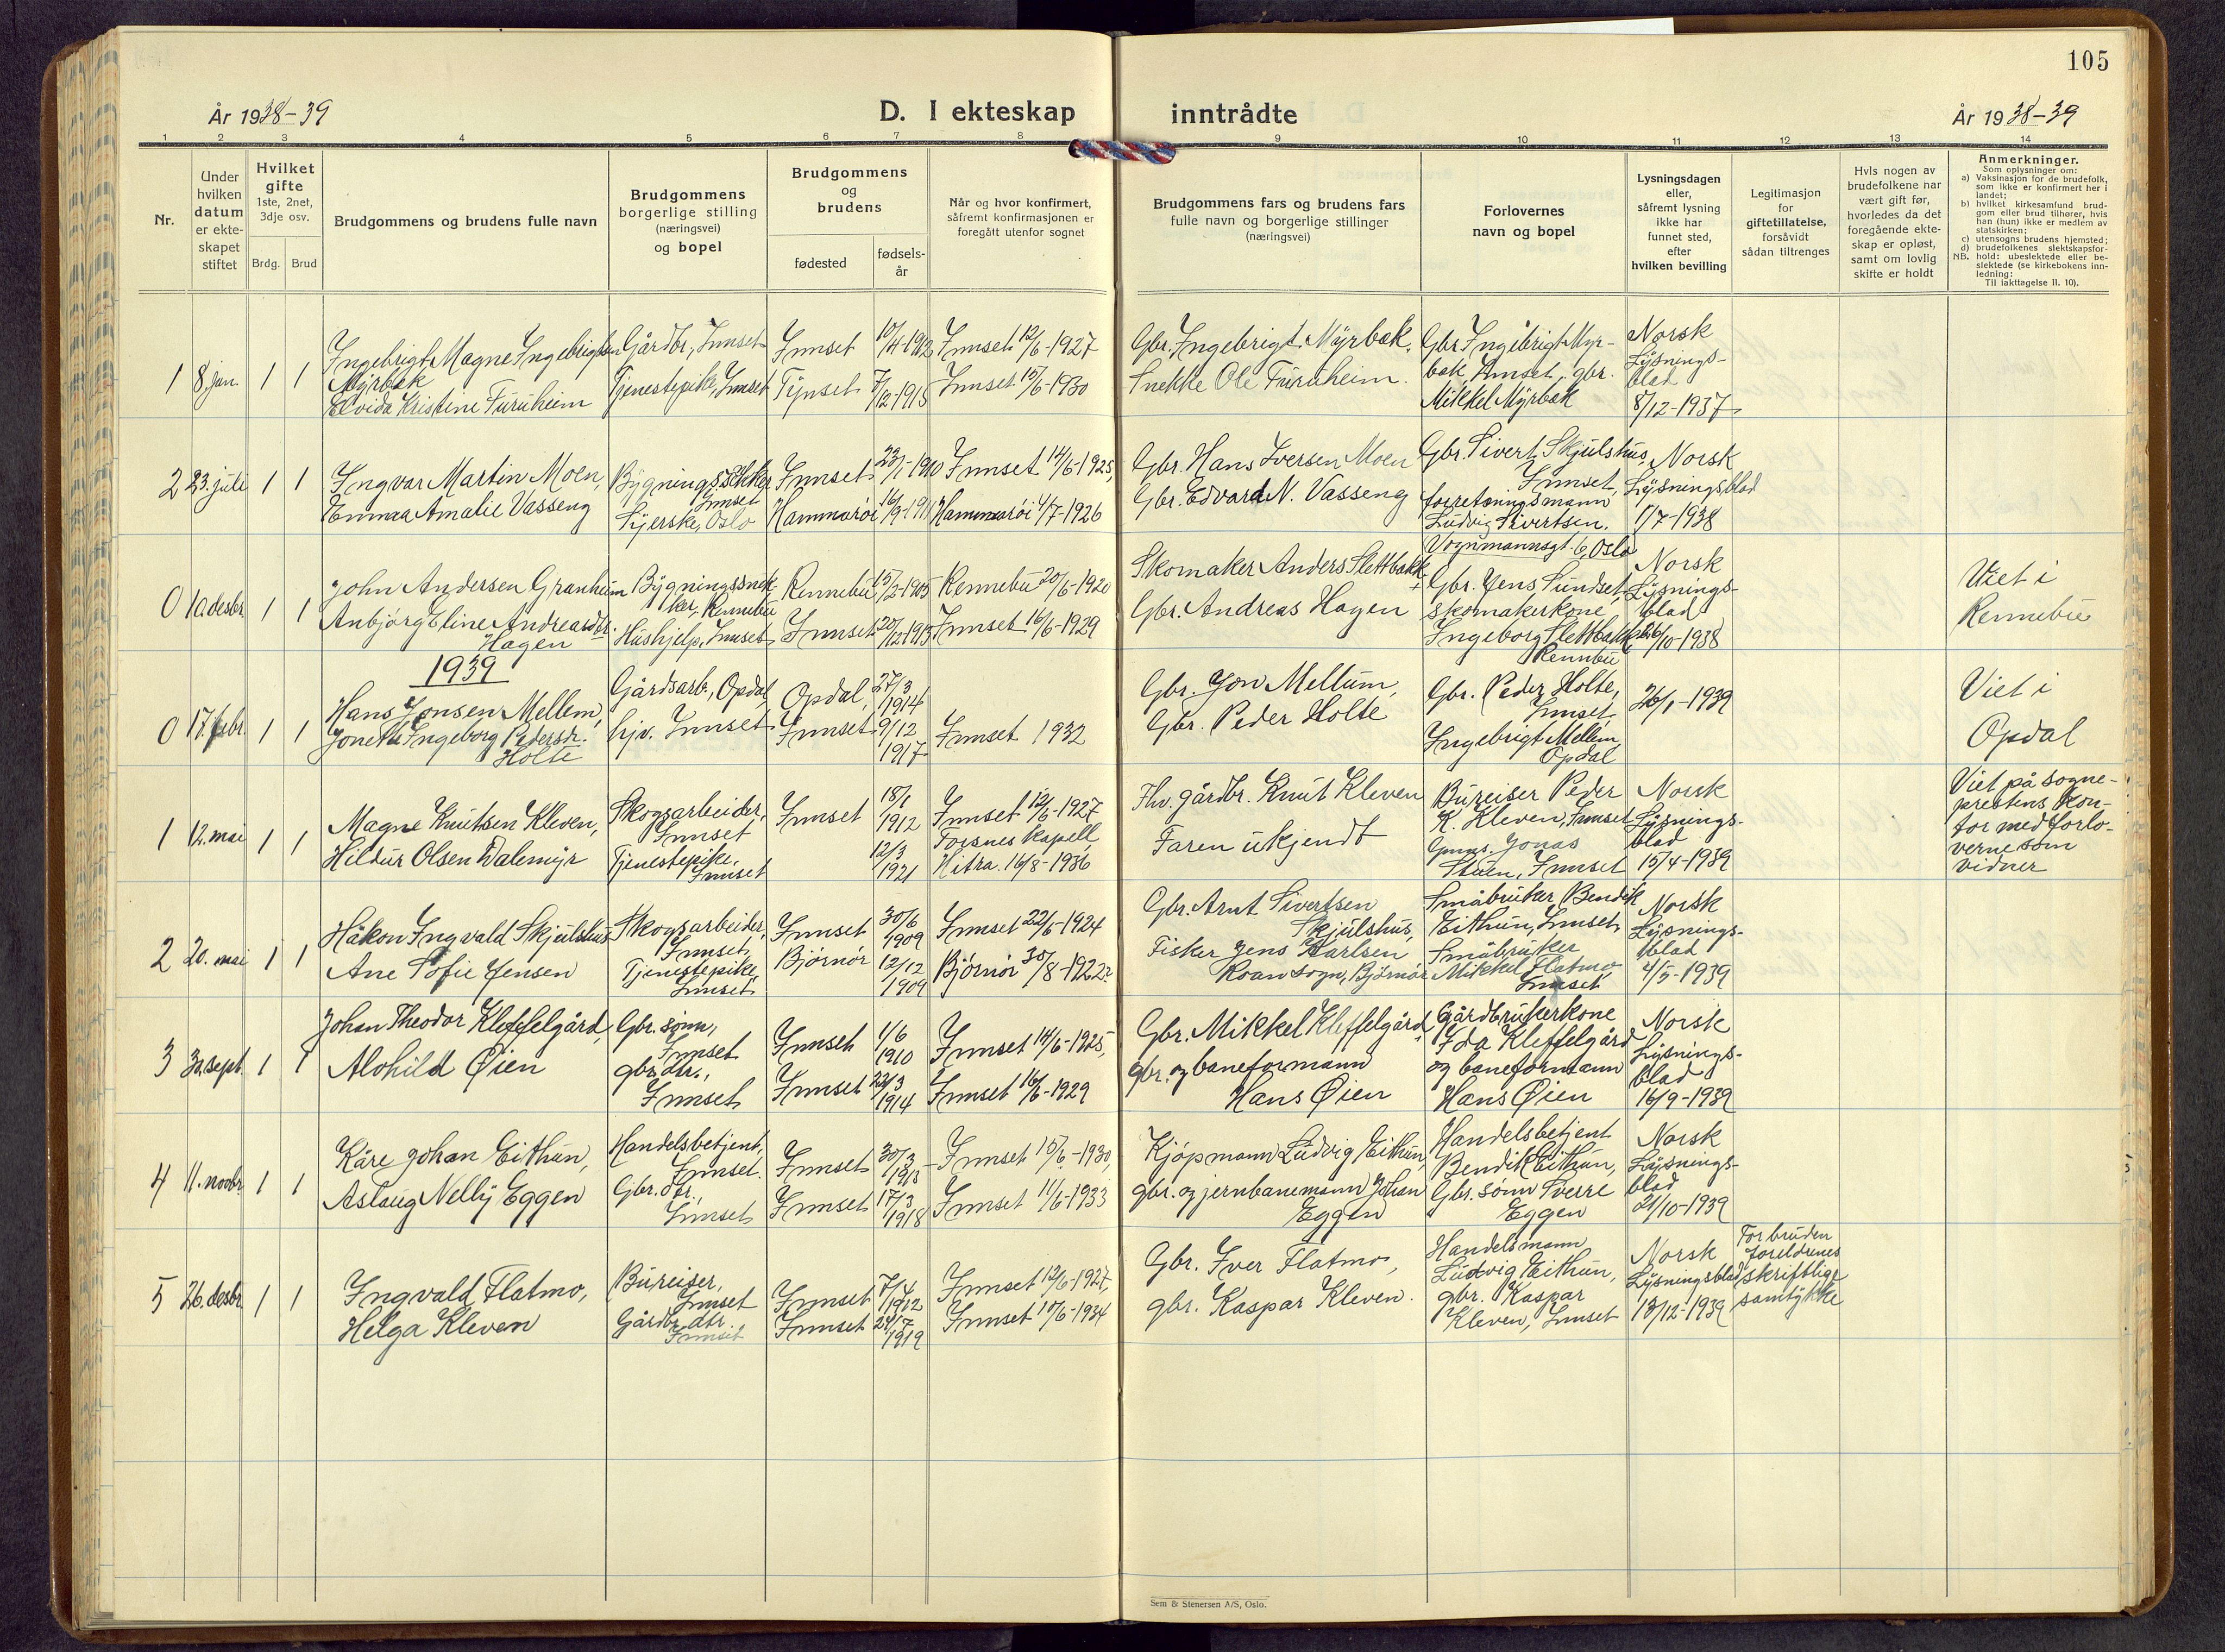 105
År 1938-39
D. I ekteskap
inntrådte
År 1938-39
1 2 3 4 5 6 7 8 9 10 11 12 13 14
Nr.
Under
hvilken
datum
er ekte-
skapet
stiftet
Hvilket
gifte
1ste, 2net,
3dje osv.
Brdg. Brud
Brudgommens og brudens fulle navn
Brudgommens
borgerlige stilling
(næringsvei)
og bopel
Brudgommens
og
brudens
fødested
fødsels-
år
Når og hvor konfirmert,
såfremt konfirmasjonen er
foregått utenfor sognet
Brudgommens fars og brudens fars
fulle navn og borgerlige stillinger
(næringsvei)
Forlovernes
navn og bopel
Lysningsdagen
eller,
såfremt lysning
ikke har
funnet sted,
efter
hvilken bevilling
Legitimasjon
for
giftetillatelse,
forsåvidt
sådan tiltrenges
Hvis nogen av
brudefolkene har
vært gift før,
hvorledes da det
foregående ekte-
skap er opløst,
samt om lovlig
skifte er holdt
Anmerkninger.
Som oplysninger om:
a) Vaksinasjon for de brudefolk,
som ikke er konfirmert her i
landet;
b) hvilket kirkesamfund brud-
gom eller brud tilhører, hvis
han (hun) ikke er medlem av
statskirken;
c) utensogns brudens hjemsted;
d) brudefolkenes slektskapsfor-
NB. hold: ubeslektede eller be-
slektede (se kirkebokens inn-
ledning:
Til iakttagelse II. 10).
1 8. jan. 1 1
Ingebrigt Magne Ingebrigtsen
Myrbak
Elvida Kristine Furuheim
Gårdbr., Innset
Tjenestepike, Innset
Innset 10/4-1912
Tynset 7/12-1915
Innset 12/6-1927
Innset 15/6-1930
Gbr. Ingebrigt Myrbak.
Snekke Ole Furuheim.
Gbr Ingebrigt Myr-
bak Innset, gbr.
Mikkel Myrbak
Norsk
Lysnings-
blad
8/12-1937
2 23. juli 1 1
Ingvar Martin Moen,
Emma Amalie Vasseng
Bygningssnekker
Innset
Syerske, Oslo
Innset 23/1-1910
Hammarøi 16/9-1911
Innset 14/6-1925,
Hammarøi 4/7-1926
Gbr. Hans Iversen Moen
Gbr. Edvard N. Vasseng
Gbr. Sivert Skjulshus,
Innset,
forretningsmann
Ludvig Sivertsen,
Vognmannsgt. 6, Oslo
Norsk
Lysningsblad
1/7-1938
0 10. desbr. 1 1
John Andersen Granheim
Anbjørg Eline Andreasdtr.
Hagen
Bygningssnek-
ker, Rennebu
Hushjelp, Innset
Rennebu 15/2-1905
Innset 20/12-1915
Rennebu 20/6-1920
Innset 16/6-1929
Skomaker Anders Slettbakk
Gbr. Andreas Hagen
Gbr. Jens Sundset
skomakerkone
Ingeborg Slettbakk
Rennbu
Norsk
Lysnings-
blad
26/10-1938
Viet i
Rennebu
1939
0 17. febr. 1 1
Hans Jonsen Mellem,
Jonette Ingeborg Pedersdr.
Holte
Gårdsarb., Opdal
hjv. Innset
Opdal, 27/3 1914
Innset 9/12 1917
Innset 1932
Gbr. Jon Mellum,
Gbr. Peder Holte
Gbr. Peder Holte,
Innset,
Ingebrigt Mellem,
Opdal
26/1-1939
Viet i
Opdal
1 12. mai 1 1
Magne Knutsen Kleven,
Hildur Olsen Dalemyr
Skogsarbeider,
Innset
Tjenestepike,
Innset
Innset 18/1 1912
12/3 1921
Innset 12/6-1927
Forsnes kapell,
Hitra. 16/8-1936
Fhv. gårdbr. Knut Kleven
Faren ukjendt
Bureiser Peder
K. Kleven, Innset
Jonas
Stuen, Innset
Norsk
Lysnings-
blad
15/4-1939
Viet på sogne-
prestens kon-
tor med forlo-
verne som
vidner
2 20. mai 1 1
Håkon Ingvald Skjulshus
Ane Sofie Jensen
Skogsarbeider,
Innset,
Tjenestepike,
Innset
Innset 30/6 1909
Bjørnør 12/12 1909
Innset 22/6-1924
Bjørnør 30/8-1922
Gbr. Arnt Sivertsen
Skjulshus,
Fisker Jens Karlsen
Roan sogn, Bjørnør
Småbruker Bendik
Eithun, Innset,
Småbruker
Mikkel Flatmo,
Innset
Norsk
Lysnings-
blad
4/5-1939
3 30. sept. 1 1
Johan Theodor Kleffelgård,
Alvhild Øien
Gbr. sønn,
Innset
gbr. dtr.,
Innset
Innset 1/6 1910
Innset 22/3 1914
Innset 14/6-1925,
Innset 16/6-1929
Gbr. Mikkel Kleffelgård,
gbr. og baneformann
Hans Øien
Gårdbrukerkone
Ida Kleffelgård
og baneformann
Hans Øien
Norsk
Lysnings-
blad
16/9-1939
4 11. novbr. 1 1
Kåre Johan Eithun,
Aslaug Nelly Eggen
Handelsbetjent,
Innset.
Gbr. dtr.,
Innset
Innset 30/3 1915
Innset 17/3 1918
Innset 15/6-1930,
Innset 11/6-1933
Kjøpmann Ludvig Eithun,
gbr. og jernbanemann Johan
Eggen
Handelsbetjent
Bendik Eithun,
Gbr. sønn Sverre
Eggen
Norsk
Lysnings-
blad
21/10-1939
5 26. desbr. 1 1
Ingvald Flatmo,
Helga Kleven
Bureiser,
Innset
Gårdbr. dtr.
Innset
Innset 7/4 1912
Innset 24/7 1919
Innset 12/6-1927,
Innset 10/6-1934
Gbr. Iver Flatmo,
gbr. Kaspar Kleven.
Handelsmann
Ludvig Eithun,
gbr. Kaspar
Kleven, Innset
Norsk
Lysningsblad
13/12-1939
For bruden
foreldrenes
skriftlige
samtykke
Sem & Stenersen A/S, Oslo.